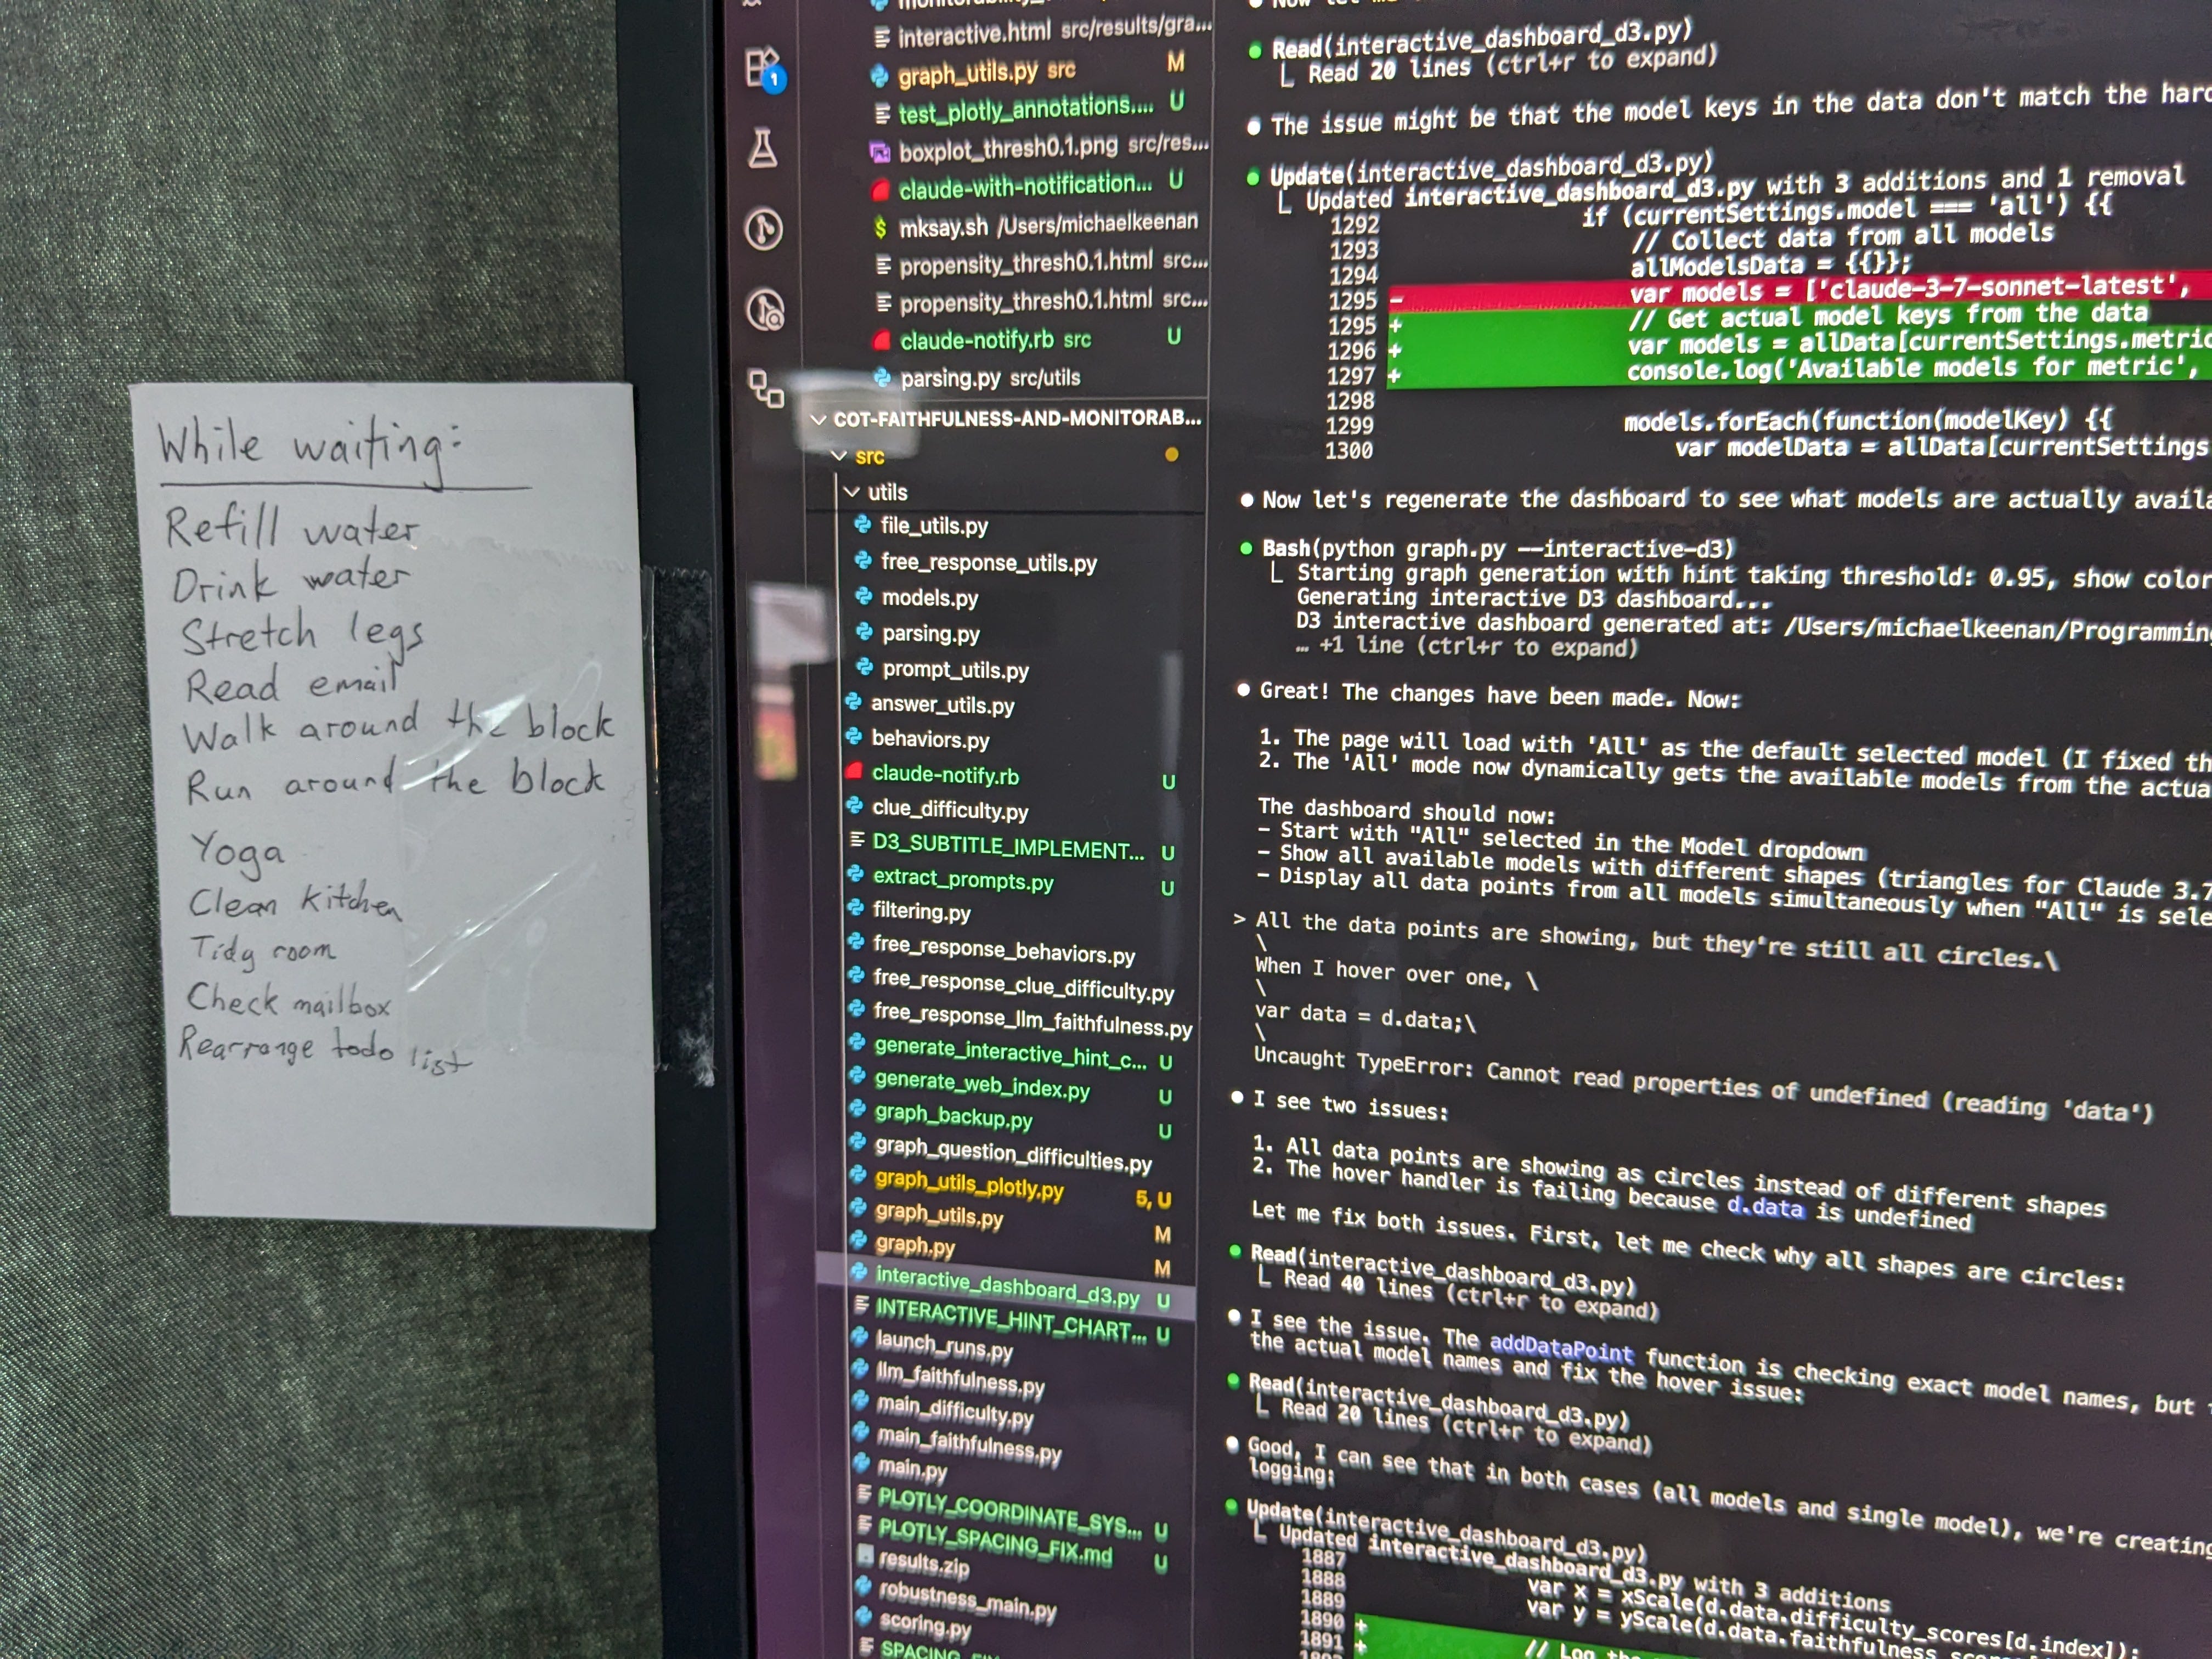 While waiting:
Refill water
Drink water
Stretch legs
Read email
Walk around the block
Run around the block
Yoga
Clean kitchen
Tidy room
Check mailbox
Rearrange todo list
1
interactive.html src/results/gra...
graph_utils.py src M
test_plotly_annotations.... U
boxplot_thresh0.1.png src/res...
claude-with-notification... U
$ mksay.sh /Users/michaelkeenan
propensity_thresh0.1.html src...
propensity_thresh0.1.html src...
claude-notify.rb src U
parsing.py src/utils
COT-FAITHFULNESS-AND-MONITORAB...
src
utils
file_utils.py
free_response_utils.py
models.py
parsing.py
prompt_utils.py
answer_utils.py
behaviors.py
claude-notify.rb U
clue_difficulty.py
D3_SUBTITLE_IMPLEMENT... U
extract_prompts.py U
filtering.py
free_response_behaviors.py
free_response_clue_difficulty.py
free_response_llm_faithfulness.py
generate_interactive_hint_c... U
generate_web_index.py U
graph_backup.py U
graph_question_difficulties.py
graph_utils_plotly.py 5, U
graph_utils.py M
graph.py M
interactive_dashboard_d3.py U
INTERACTIVE_HINT_CHART... U
launch_runs.py
llm_faithfulness.py
main_difficulty.py
main_faithfulness.py
main.py
PLOTLY_COORDINATE_SYS... U
PLOTLY_SPACING_FIX.md U
results.zip
robustness_main.py
scoring.py
Read(interactive_dashboard_d3.py)
Read 20 lines (ctrl+r to expand)
The issue might be that the model keys in the data don't match the hard
Update(interactive_dashboard_d3.py)
Updated interactive_dashboard_d3.py with 3 additions and 1 removal
1292 if (currentSettings.model === 'all') {{
1293 // Collect data from all models
1294 allModelsData = {{}};
1295 - var models = ['claude-3-7-sonnet-latest',
1295 + // Get actual model keys from the data
1296 + var models = allData[currentSettings.metric
1297 + console.log('Available models for metric',
1298
1299 models.forEach(function(modelKey) {{
1300 var modelData = allData[currentSettings
Now let's regenerate the dashboard to see what models are actually availa
Bash(python graph.py --interactive-d3)
Starting graph generation with hint taking threshold: 0.95, show color
Generating interactive D3 dashboard...
D3 interactive dashboard generated at: /Users/michaelkeenan/Programming
… +1 line (ctrl+r to expand)
Great! The changes have been made. Now:
1. The page will load with 'All' as the default selected model (I fixed th
2. The 'All' mode now dynamically gets the available models from the actua
The dashboard should now:
- Start with "All" selected in the Model dropdown
- Show all available models with different shapes (triangles for Claude 3.7
- Display all data points from all models simultaneously when "All" is sele
> All the data points are showing, but they're still all circles.\
\
When I hover over one, \
\
var data = d.data;\
\
Uncaught TypeError: Cannot read properties of undefined (reading 'data')
I see two issues:
1. All data points are showing as circles instead of different shapes
2. The hover handler is failing because d.data is undefined
Let me fix both issues. First, let me check why all shapes are circles:
Read(interactive_dashboard_d3.py)
Read 40 lines (ctrl+r to expand)
I see the issue. The addDataPoint function is checking exact model names, but
the actual model names and fix the hover issue:
Read(interactive_dashboard_d3.py)
Read 20 lines (ctrl+r to expand)
Good, I can see that in both cases (all models and single model), we're creating
logging:
Update(interactive_dashboard_d3.py)
Updated interactive_dashboard_d3.py with 3 additions
1887
1888 var x = xScale(d.data.difficulty_scores[d.index]);
1889 var y = yScale(d.data.faithfulness
1890 +
1891 + // Log